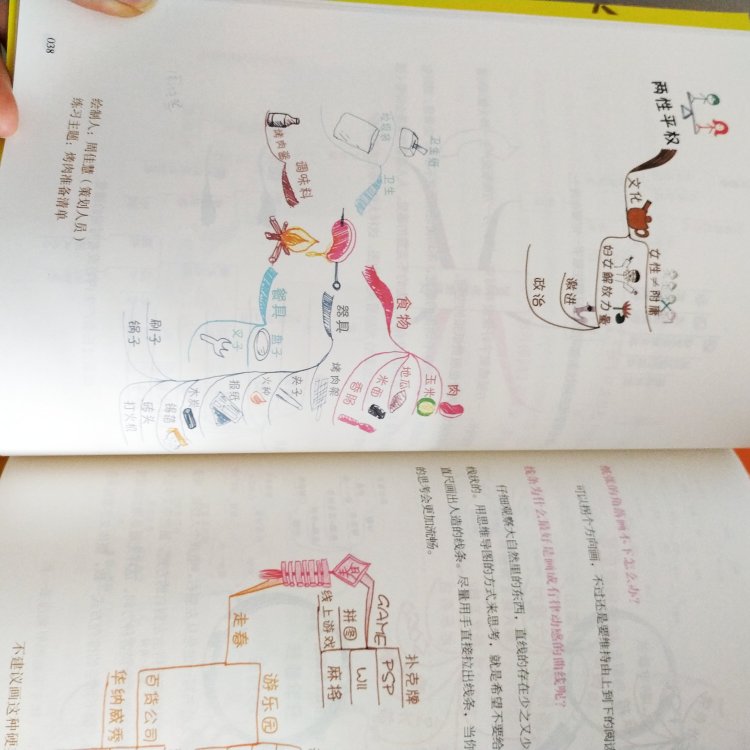 038
两性平权
文化
女性≠附庸
妇女解放力量
激进
政治
绘制人：周佳慧（策划人员）
练习主题：烤肉准备清单
食物
肉
玉米
地瓜
米血
香肠
器具
烤肉架
夹子
火种
报纸
锡箔
木炭
砖头
打火机
刷子
锅子
餐具
盘子
叉子
卫生
卫生纸
垃圾袋
调味料
烤肉酱
可以拐个方向画，不过还是要维持由上到下的阅读
线条为什么最好是画成有律动感的曲线呢？
仔细观察大自然里的东西，直线的存在少之又少
线状的。用思维导图的方式来思考，就是希望不要给
直尺画出人造的线条。尽量用手直接拉出线条，当你
的思考会更加流畅。
GAME
扑克牌
PSP
Wii
拼图
麻将
线上游戏
走春
游乐园
百货公司
华纳威秀
不建议画这种硬